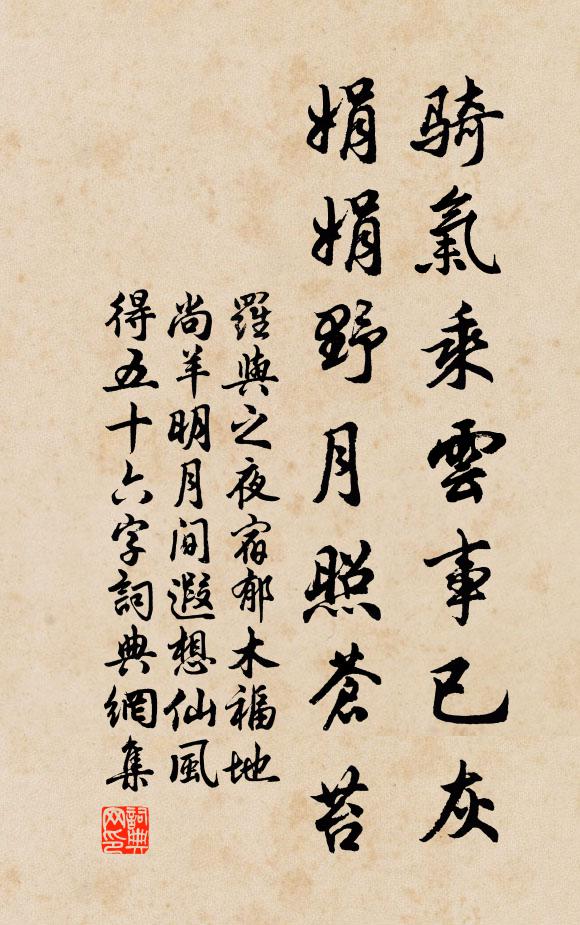 騎氣乘雲事已灰
娟娟野月照蒼苔
羅與之夜宿郁木福地
尚羊明月間遐想仙風
得五十六字詞典網集
詞典网印